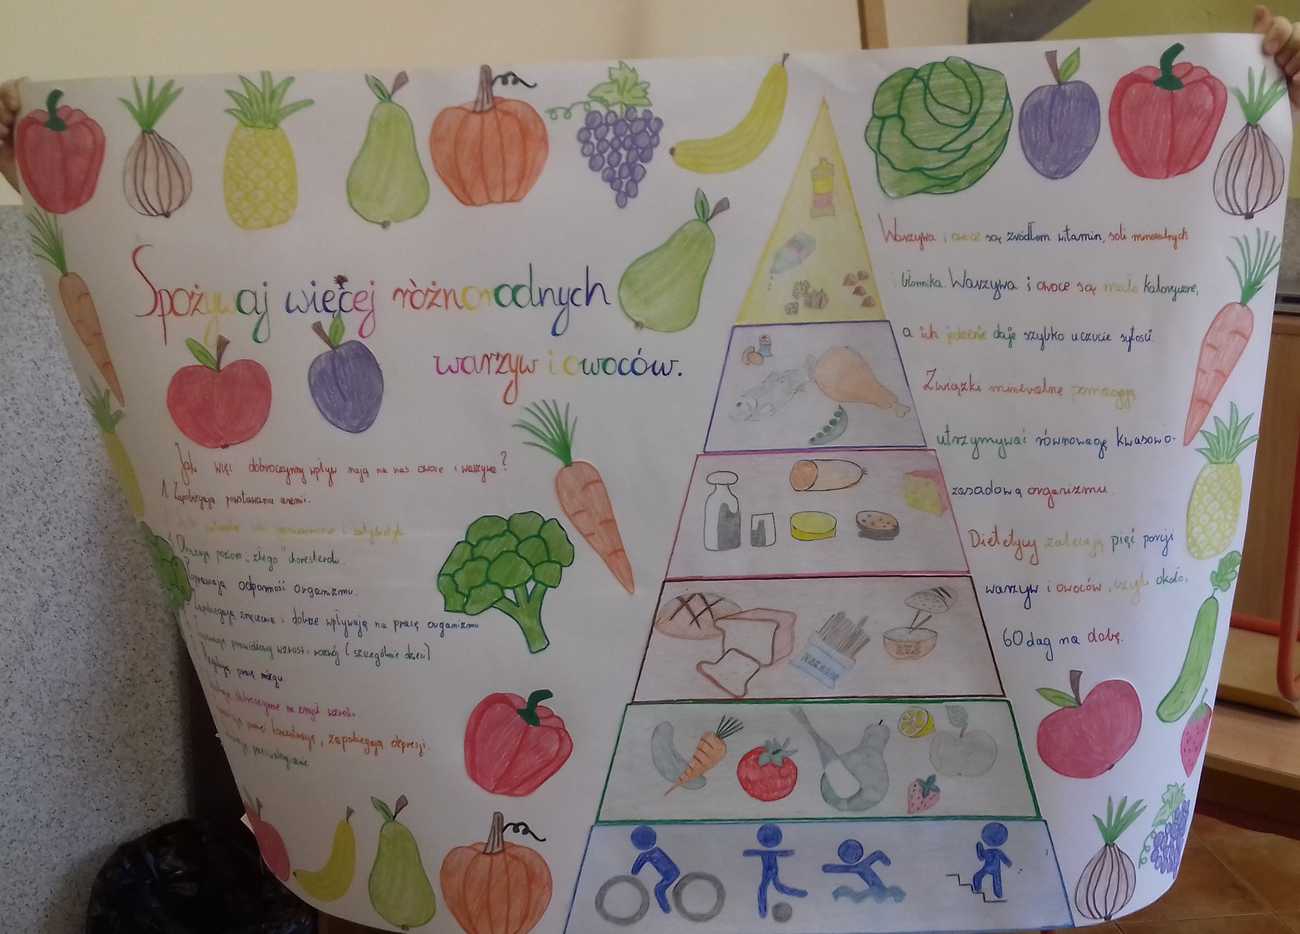 Spożywaj więcej różnorodnych
warzyw i owoców.
Jak więc dobroczynny wpływ mają na nas owoce i warzywa?
1. Zapobiegają powstawaniu anemii.
poziom „złego” cholesterolu.
Poprawiają odporność organizmu.
i dobrze wpływają na pracę organizmu
prawidłowy wzrost i rozwój (szczególnie dzieci)
pracę mózgu
dobroczynnie na zmysł wzroku.
pamięć, koncentrację, zapobiegają depresji.
Warzywa i owoce są źródłem witamin, soli mineralnych
i błonnika. Warzywa i owoce są mało kaloryczne,
a ich jedzenie daje szybko uczucie sytości.
Związki mineralne pomagają
utrzymywać równowagę kwasowo-
zasadową organizmu.
Dietetycy zalecają pięć porcji
warzyw i owoców, czyli około,
60 dag na dobę.